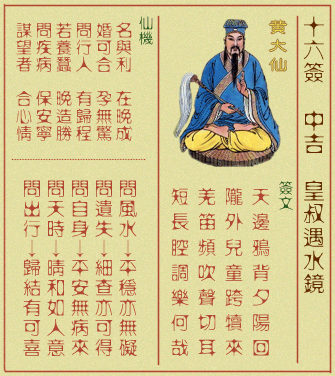 十六簽 中吉 皇叔遇水鏡
黄大仙
簽文
天邊鴉背夕陽回
隴外兒童跨犢來
羌笛頻吹聲切耳
短長腔調樂何哉
仙機
名與利 在晚成
婚可合 孕無驚
問行人 有歸程
若養蠶 晚造勝
問疾病 保安寧
謀望者 合心情
問風水→平穩亦無礙
問遺失→細查亦可得
問自身→平安無病來
問天時→晴和如人意
問出行→歸結有可喜